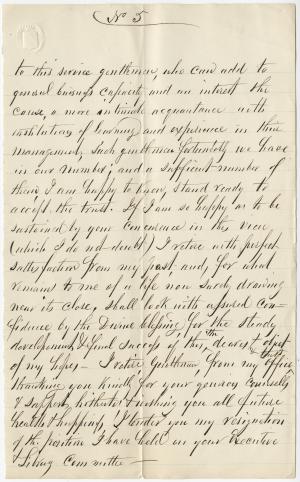 No 5
to this service gentlemen, who can add to
general business capacity and an interest in the
cause, a more intimate acquaintance with
institutions of learning and experience in their
management. Such gentlemen fortunately we have
in our number; and a sufficient number of
them, I am happy to know, stand ready to
accept the trust. If I am so happy as to be
sustained by your concurrence in this view
(which I do not doubt) I retire with perfect
satisfaction from my post, and, for what
remains to me of a life now surely drawing
near its close, shall look with assured con-
fidence by the Divine blessing, for the steady
development & final success of this, the dearest object
of my hopes — I retire, Gentlemen, from my office
thanking you kindly for your generous counsels
& support, hitherto & wishing you all future
health & happiness, I tender you my resignation
of the position I have held in your Executive
& Library Committee —